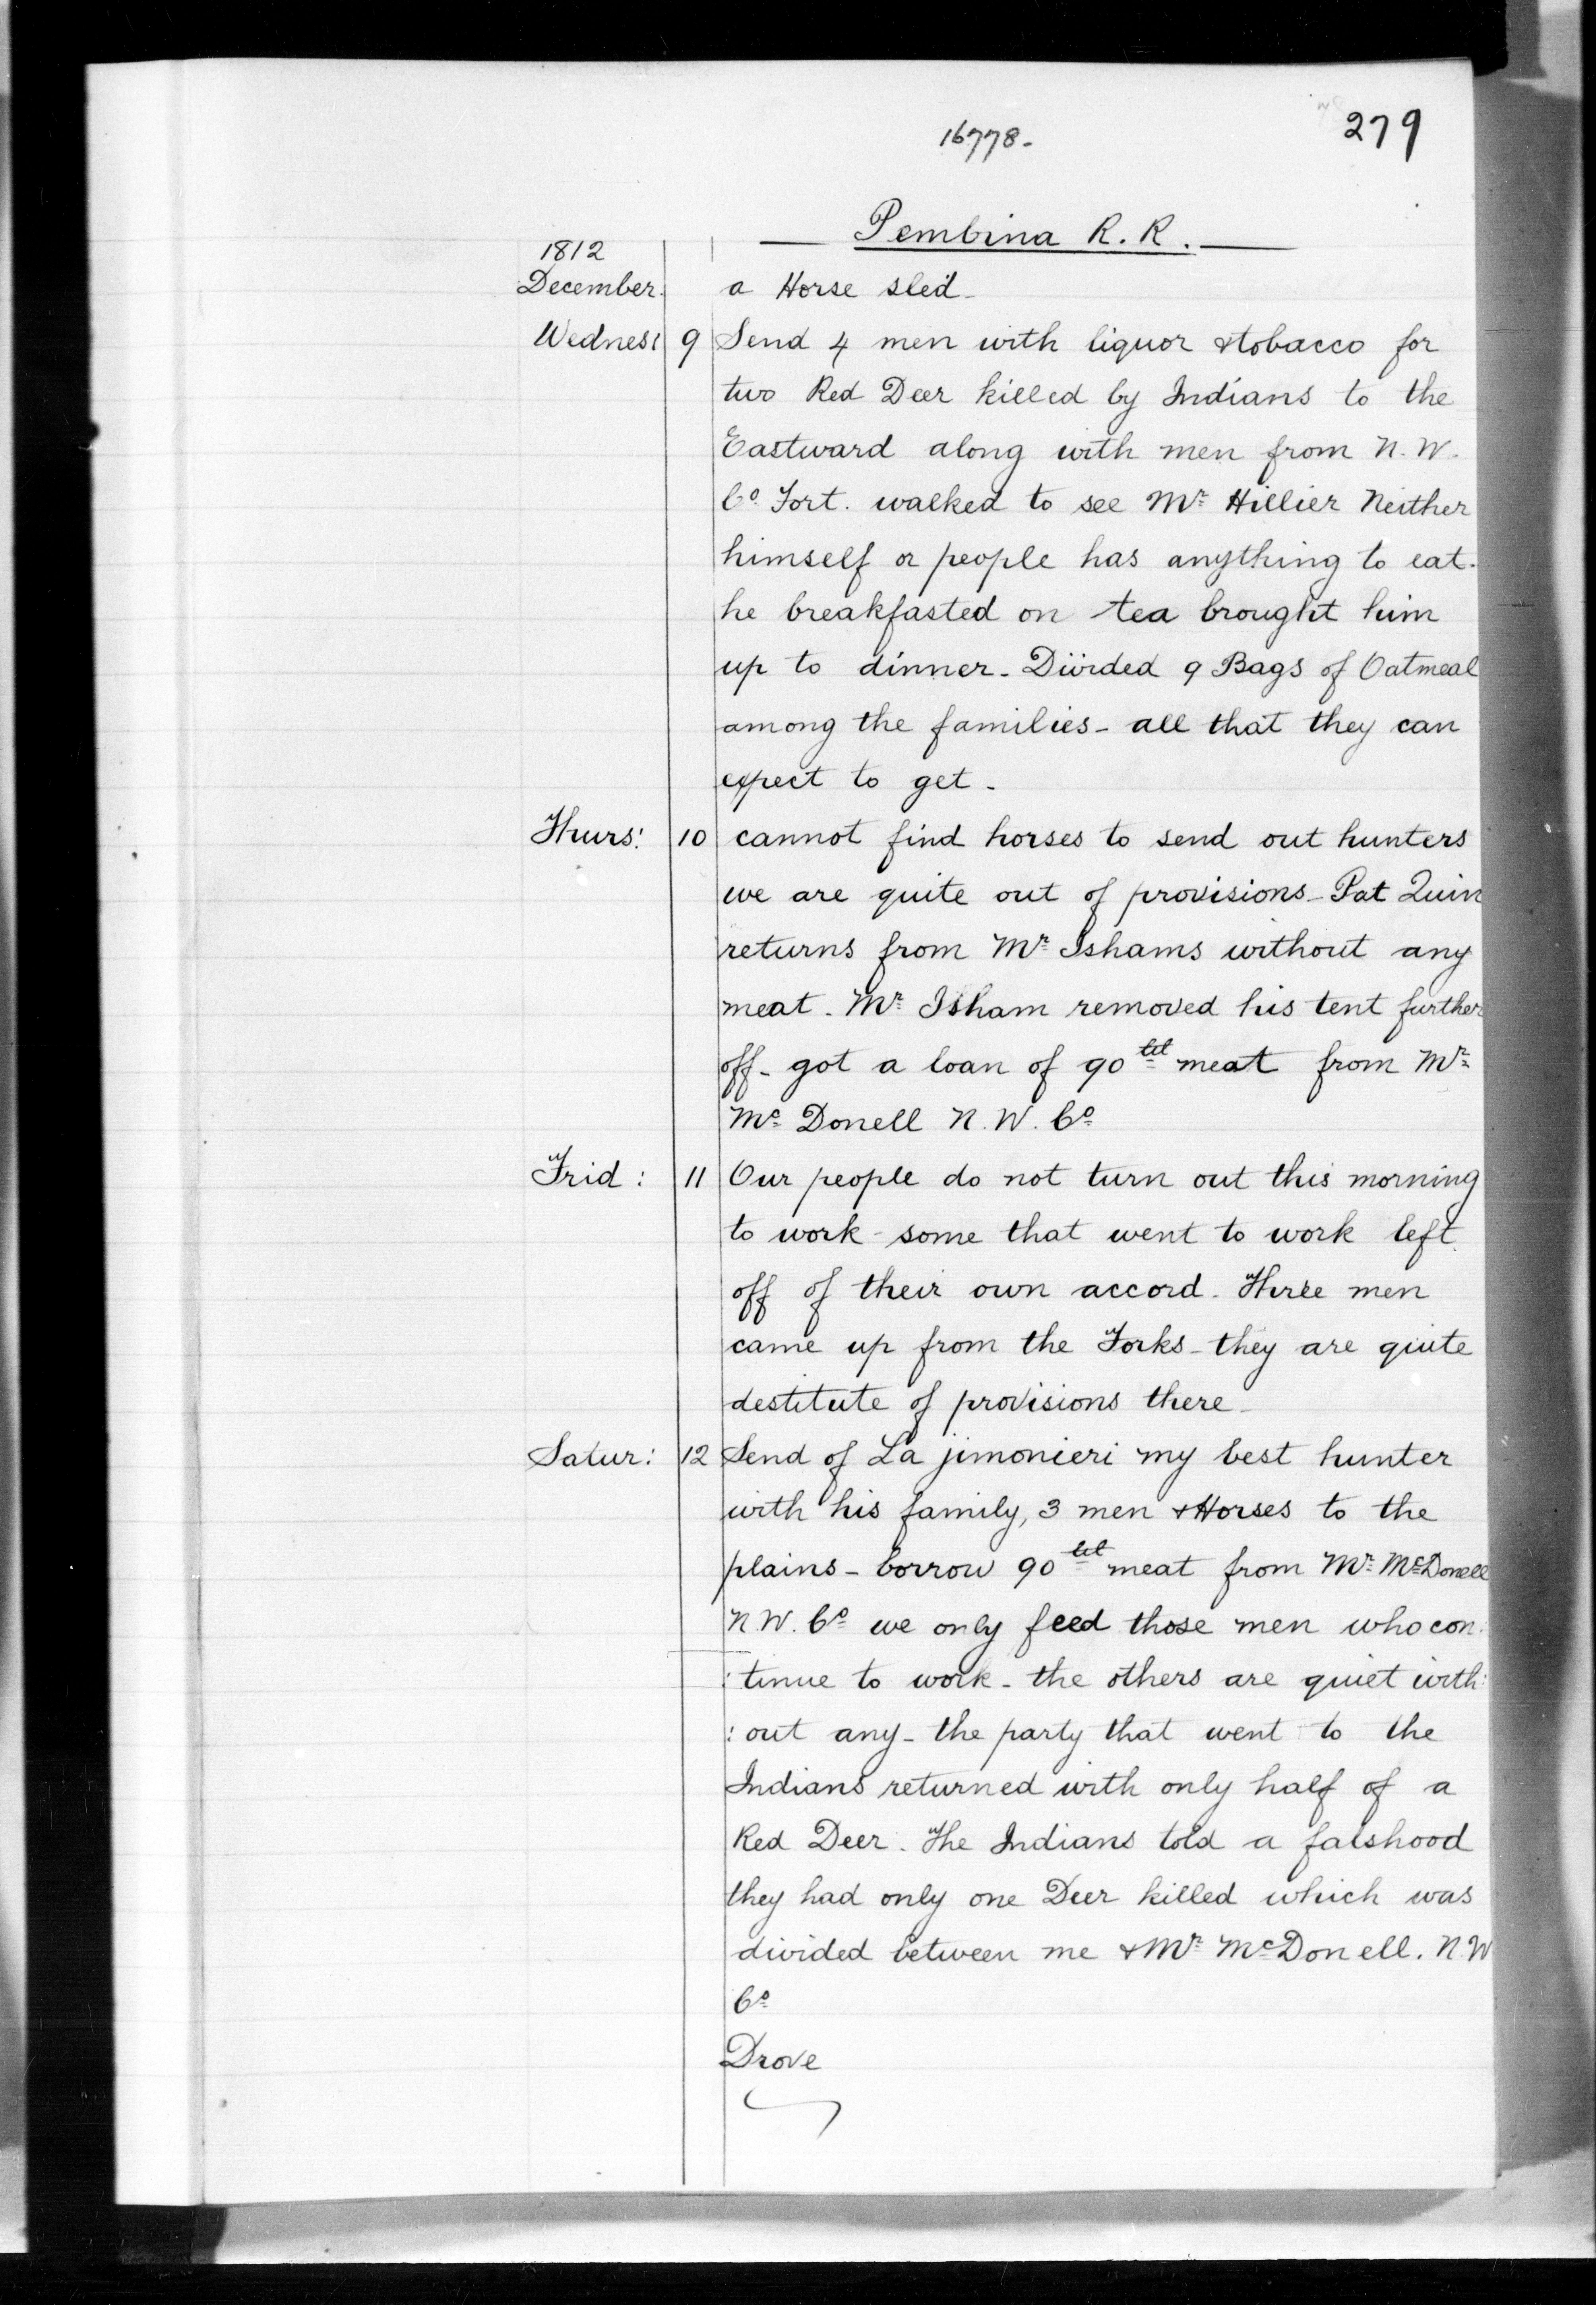 279
16778.
Pembina R. R.
1812
December. a Horse sled
Wednes: 9 Send 4 men with liquor & tobacco for
two Red Deer killed by Indians to the
Eastward along with men from N. W.
Co. Fort. walked to see Mr. Hillier Neither
himself or people has anything to eat.
he breakfasted on tea brought him
up to dinner - Divided 9 Bags of Oatmeal
among the families - all that they can
expect to get -
Thurs: 10 cannot find horses to send out hunters
we are quite out of provisions - Pat Quin
returns from Mr. Ishams without any
meat - Mr. Isham removed his tent further
off - got a loan of 90 lbs meat from Mr.
Mc. Donell N. W. Co.
Frid: 11 Our people do not turn out this morning
to work - some that went to work left
off of their own accord - Three men
came up from the Forks - they are quite
destitute of provisions there -
Satur: 12 Send of La jimonieri my best hunter
with his family, 3 men & Horses to the
plains - borrow 90 lbs meat from Mr. McDonell
N. W. Co. we only feed those men who con
: tinue to work - the others are quiet with:
: out any - the party that went to the
Indians returned with only half of a
Red Deer. The Indians told a falshood
they had only one Deer killed which was
divided between me & Mr. McDonell. N. W
Co.
Drove